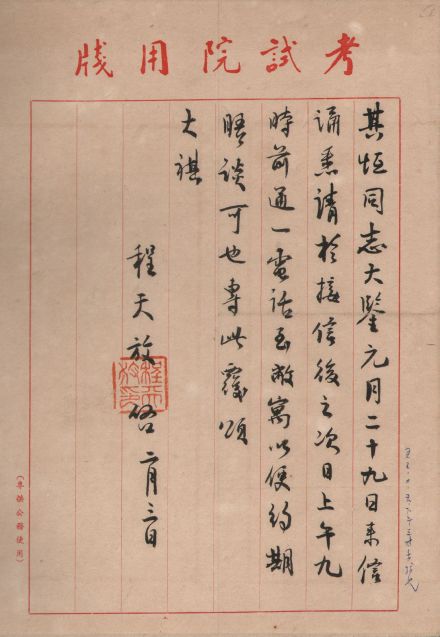 考試院用牋
其恆同志大鑒元月二十九日來信
誦悉請於接信後之次日上午九
時前通一電話至敝寓以便約期
晤談可也專此覆頌
大祺
程天放啓 二月二日
程天放印
（專供公務使用）